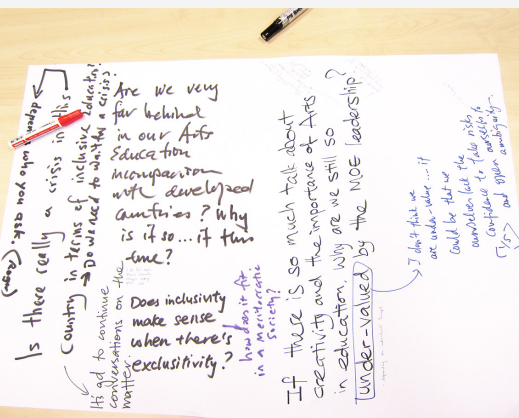 Is there really a crisis in this
Country in terms of inclusive Education?
→ Do we need to wait for a crisis?
depends who you ask.
It's gd to continue
conversations on the
matter.
Are we very
far behind
in our Arts
Education
incomparison
with developed
countries? Why
is it so... if this
time?
Does inclusivity
make sense
when there's
exclusitivity?
how does it fit
in a meritocratic
society?
If there is so much talk about
creativity and the importance of Arts
in education. Why are we still so
under-valued by the MOE leadership?
I don't think we
are under-value... it
could be that we
ourselves lack the
confidence to take risks
and open ambiguity.